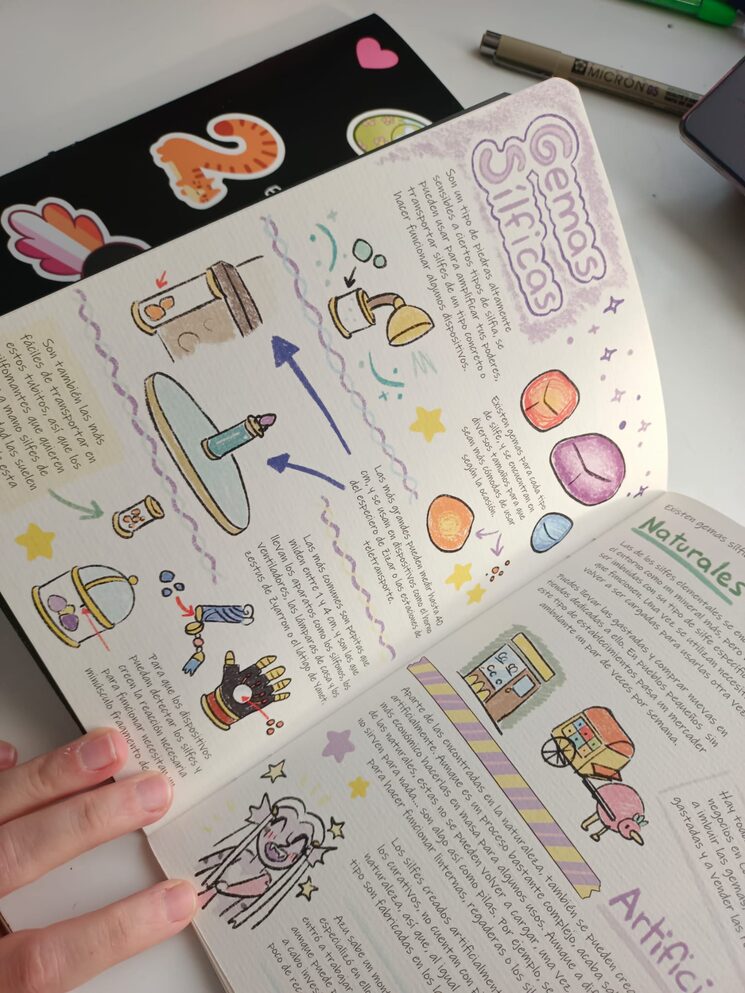 MICRON 05
Gemas
Sílficas
Son un tipo de piedras altamente
sensibles a ciertos tipos de silfia, se
pueden usar para amplificar tus poderes,
transportar silfes de un tipo concreto o
hacer funcionar algunos dispositivos.
Existen gemas para cada tipo
de silfe, y se encuentran en
diversos tamaños para que
sean más cómodas de usar
según la ocasión.
Las más grandes pueden medir hasta 40
cm, y se usan en dispositivos como el horno
del especiero de Zizar o las estaciones de
teletransporte.
Las más comunes son pepitas que
miden entre 1 y 4 cm y son las que
llevan los aparatos como los sifones, los
ventiladores, las lámparas de casa, los
zestus de Zyarron o el látigo de Yanet
Son también las más
fáciles de transportar en
estos tubitos, así que los
silfomantes que quieren
a mano silfes de
las suelen
esta
Para que los dispositivos
puedan detectar los silfes y
creen la reacción necesaria
para funcionar necesitan un
minúsculo fragmento de
Existen gemas silf
Naturales
Las de los silfes elementales se en
el entorno como un mineral más, pero
ser imbuidas con un tipo de silfe específi
que funcionen. Una vez se utilizan necesit
volver a ser cargadas para usarlas otra ve
Puedes llevar las gastadas y comprar nuevas en
tiendas dedicadas a ello. En pueblos pequeños sin
este tipo de establecimientos pasa un mercader
ambulante un par de veces por semana.
Hay toda
negocios en
a imbuir las gema
gastadas y a vender las
Artifici
Aparte de las encontradas en la naturaleza, también se pueden crea
artificialmente. Aunque es un proceso bastante complejo, acaba so
más económico hacerlas en masa para algunos usos. Aunque a dif
de las naturales, estas no se pueden volver a cargar, una vez
no sirven para nada... son algo así como pilas. Por ejemplo se
para hacer funcionar linternas, regaderas o los sil
Los silfes creados artificialment
los curativos, no cuentan con
naturaleza, así que, al igual
tipo son fabricadas en los l
Azu sabe un mont
especializó en ell
entró a trabajar
aunque puede p
a cabo inves
poco de rec